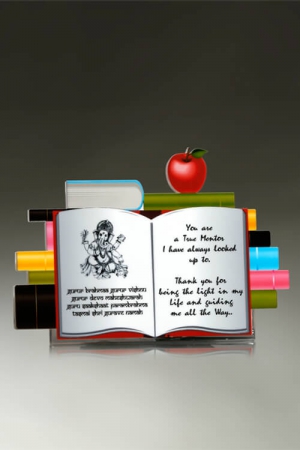 gurur brahmaa gurur vishnu
gurur devo maheshwarah
guru saakshaat parambrahma
tasmai shri gurave namah
You are
a True Mentor
I have always Looked
up to.
Thank you for
being the light in my
life and guiding
me all the Way..